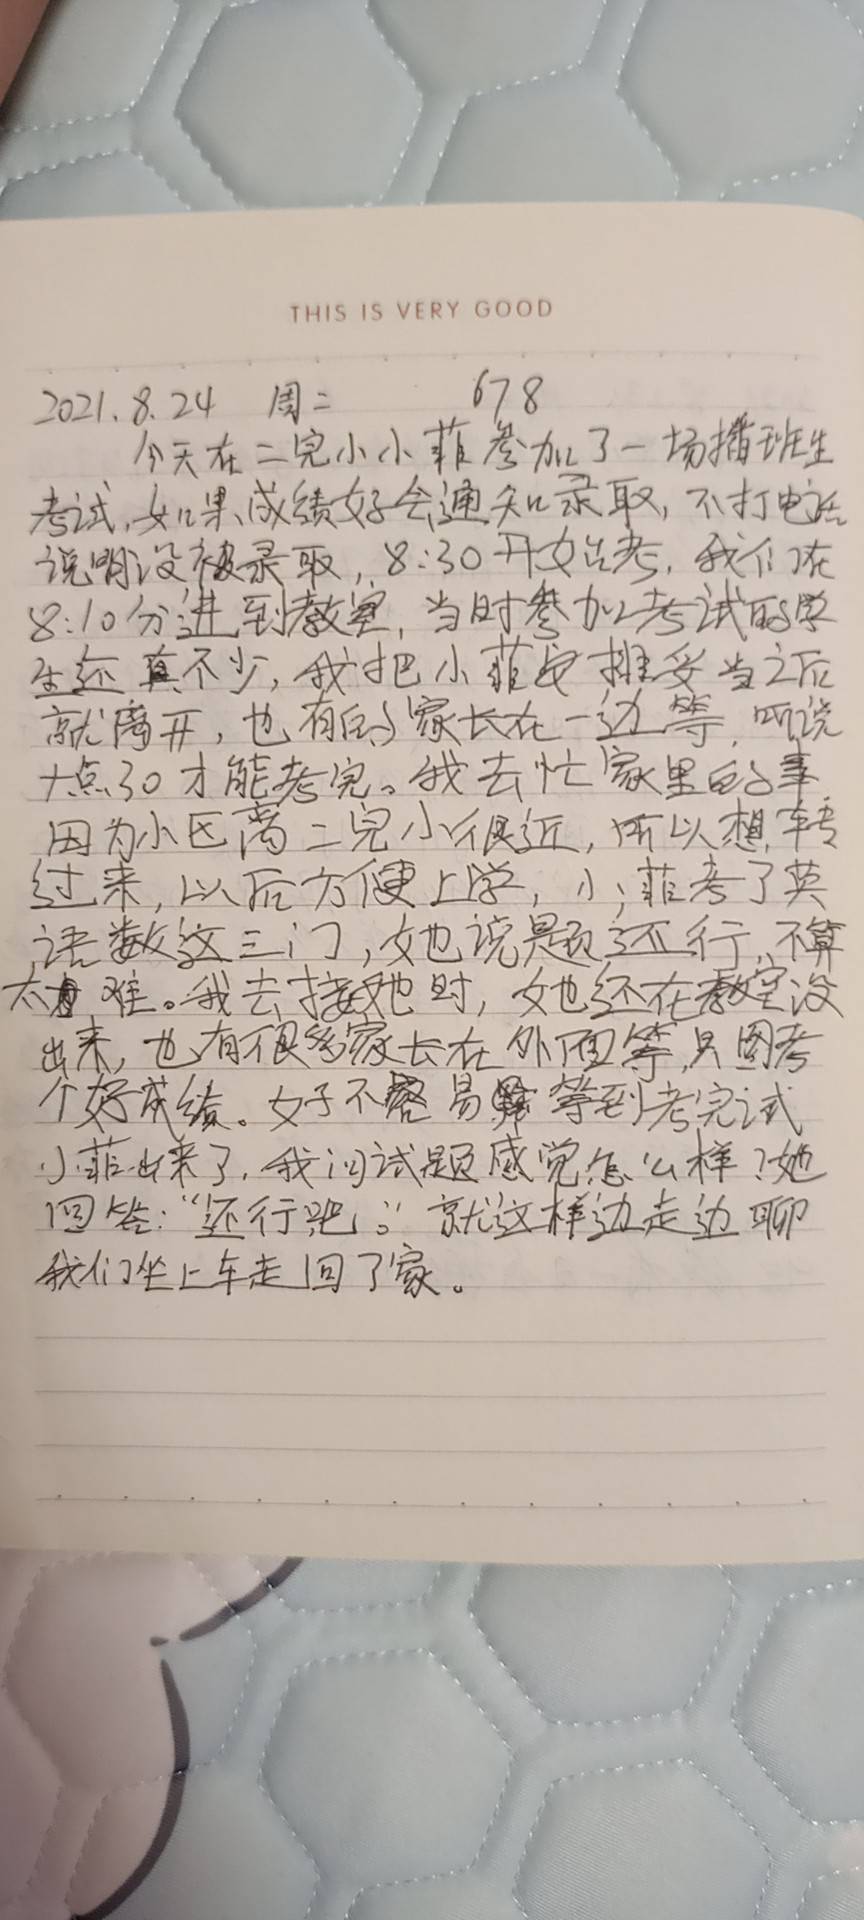 THIS IS VERY GOOD
2021.8.24 周二 678
今天在二完小小菲参加了一场播班生
考试,如果成绩好会通知录取,不打电话
说明没被录取,8:30开始考,我们在
8:10分进到教室,当时参加考试的学
生还真不少,我把小菲安排妥当之后
就离开,也有的家长在一边等,听说
十点30才能考完。我去忙家里的事
因为小区离二完小很近,所以想转
过来,以后方便上学,小菲考了英
语数这三门,她说题还行,不算
太难。我去接她时,她还在教室没
出来,也有很多家长在外面等,只图考
个好成绩。好不容易等到考完试
小菲出来了,我问试题感觉怎么样?她
回答:“还行吧。”就这样边走边聊
我们坐上车走回了家。